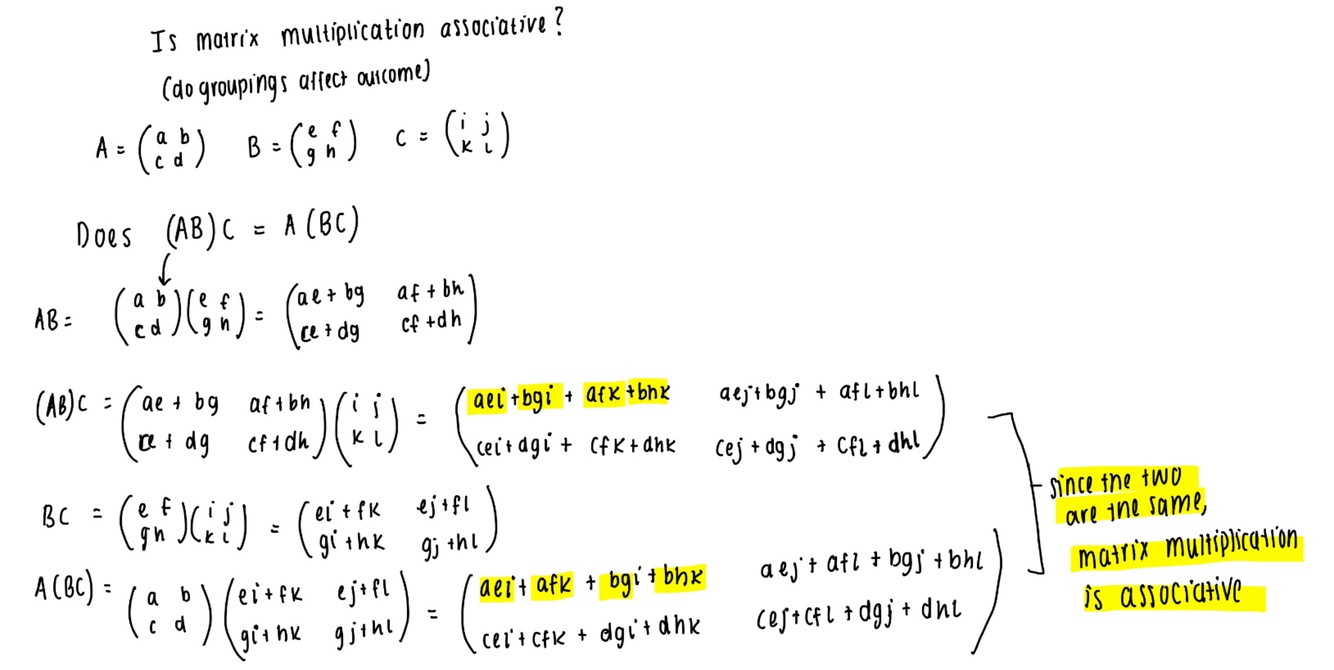 Is matrix multiplication associative?
(do groupings affect outcome)
A = (a b / c d) B = (e f / g h) C = (i j / k l)
Does (AB)C = A(BC)
AB = (a b / c d)(e f / g h) = (ae + bg af + bh / ce + dg cf + dh)
(AB)C = (ae + bg af + bh / ce + dg cf + dh)(i j / k l) = (aei + bgi + afk + bhk aej + bgj + afl + bhl / cei + dgi + cfk + dhk cej + dgj + cfl + dhl)
BC = (e f / g h)(i j / k l) = (ei + fk ej + fl / gi + hk gj + hl)
A(BC) = (a b / c d)(ei + fk ej + fl / gi + hk gj + hl) = (aei + afk + bgi + bhk aej + afl + bgj + bhl / cei + cfk + dgi + dhk cej + cfl + dgj + dhl)
since the two
are the same,
matrix multiplication
is associative